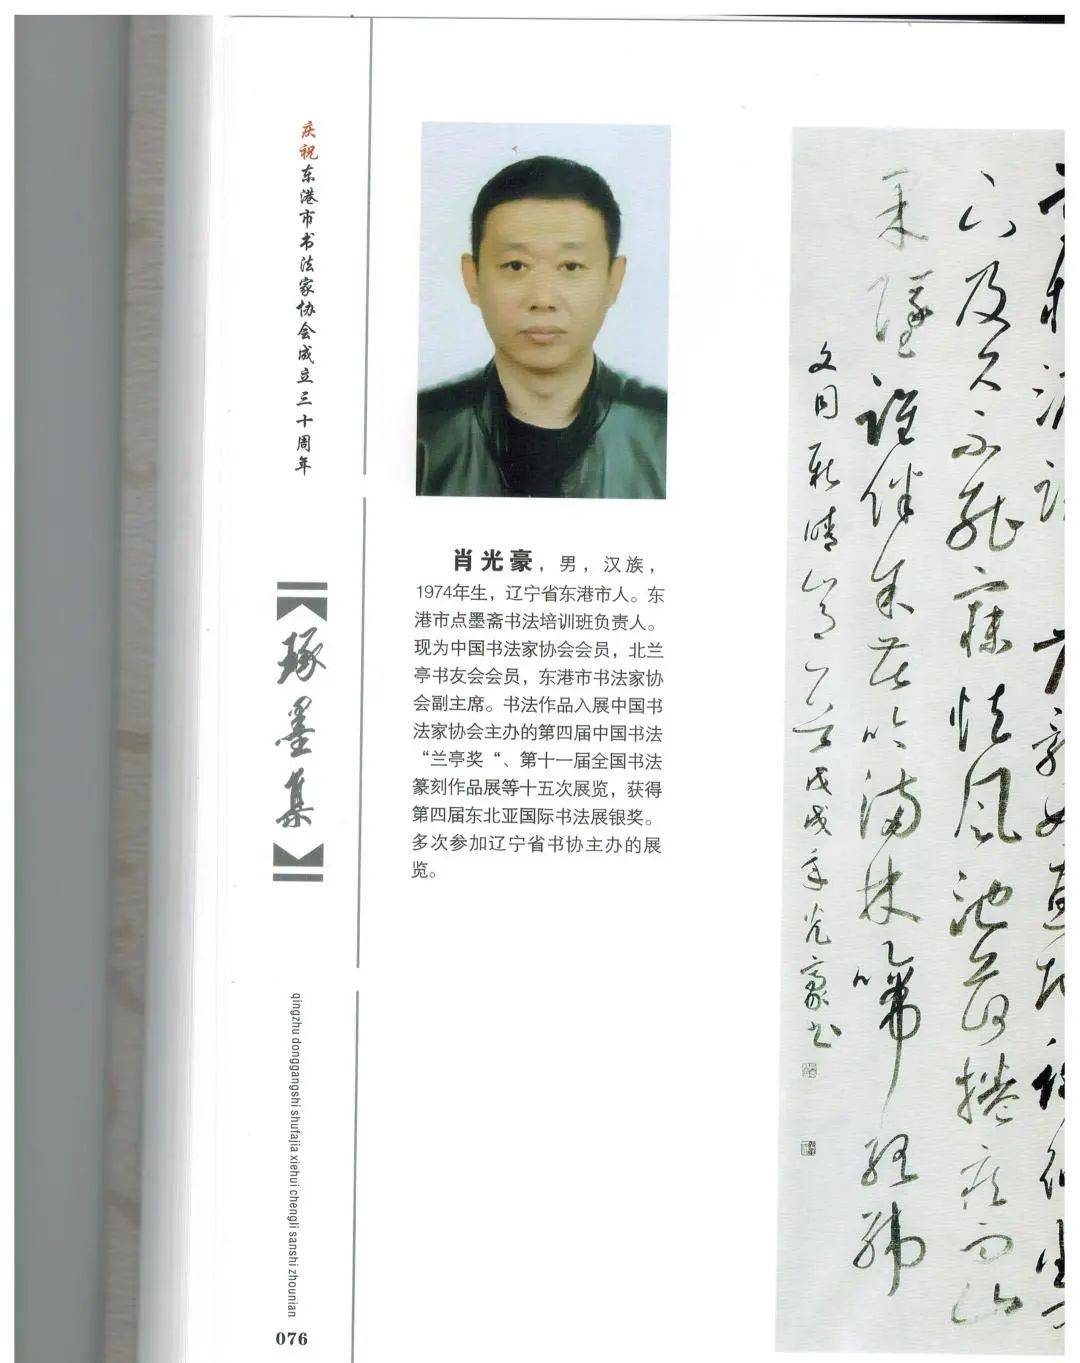 庆祝东港市书法家协会成立三十周年
琢墨集
qingzhu donggangshi shufajia xiehui chengli sanshi zhounian
076
肖光豪，男，汉族，
1974年生，辽宁省东港市人。东
港市点墨斋书法培训班负责人。
现为中国书法家协会会员，北兰
亭书友会会员，东港市书法家协
会副主席。书法作品入展中国书
法家协会主办的第四届中国书法
“兰亭奖“、第十一届全国书法
篆刻作品展等十五次展览，获得
第四届东北亚国际书法展银奖。
多次参加辽宁省书协主办的展
览。
下及久不能寐怯风池荷捲病雨山
果墜誰伴余苦吟满林啼络纬
文同新晴山月一首戊戌年光豪书